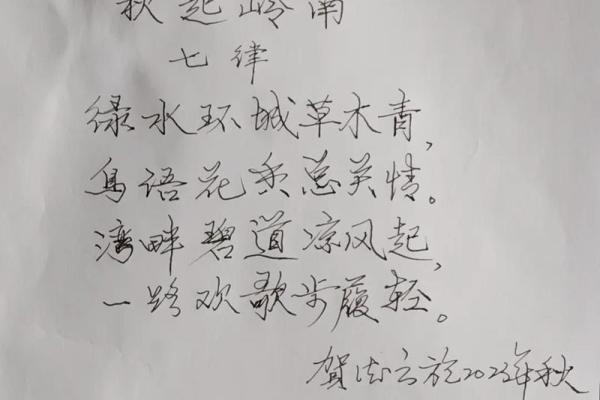 秋起岭南
七律
绿水环城草木青，
鸟语花香总关情。
湾畔碧道凉风起，
一路欢歌步履轻。
贺 云 于2023年秋